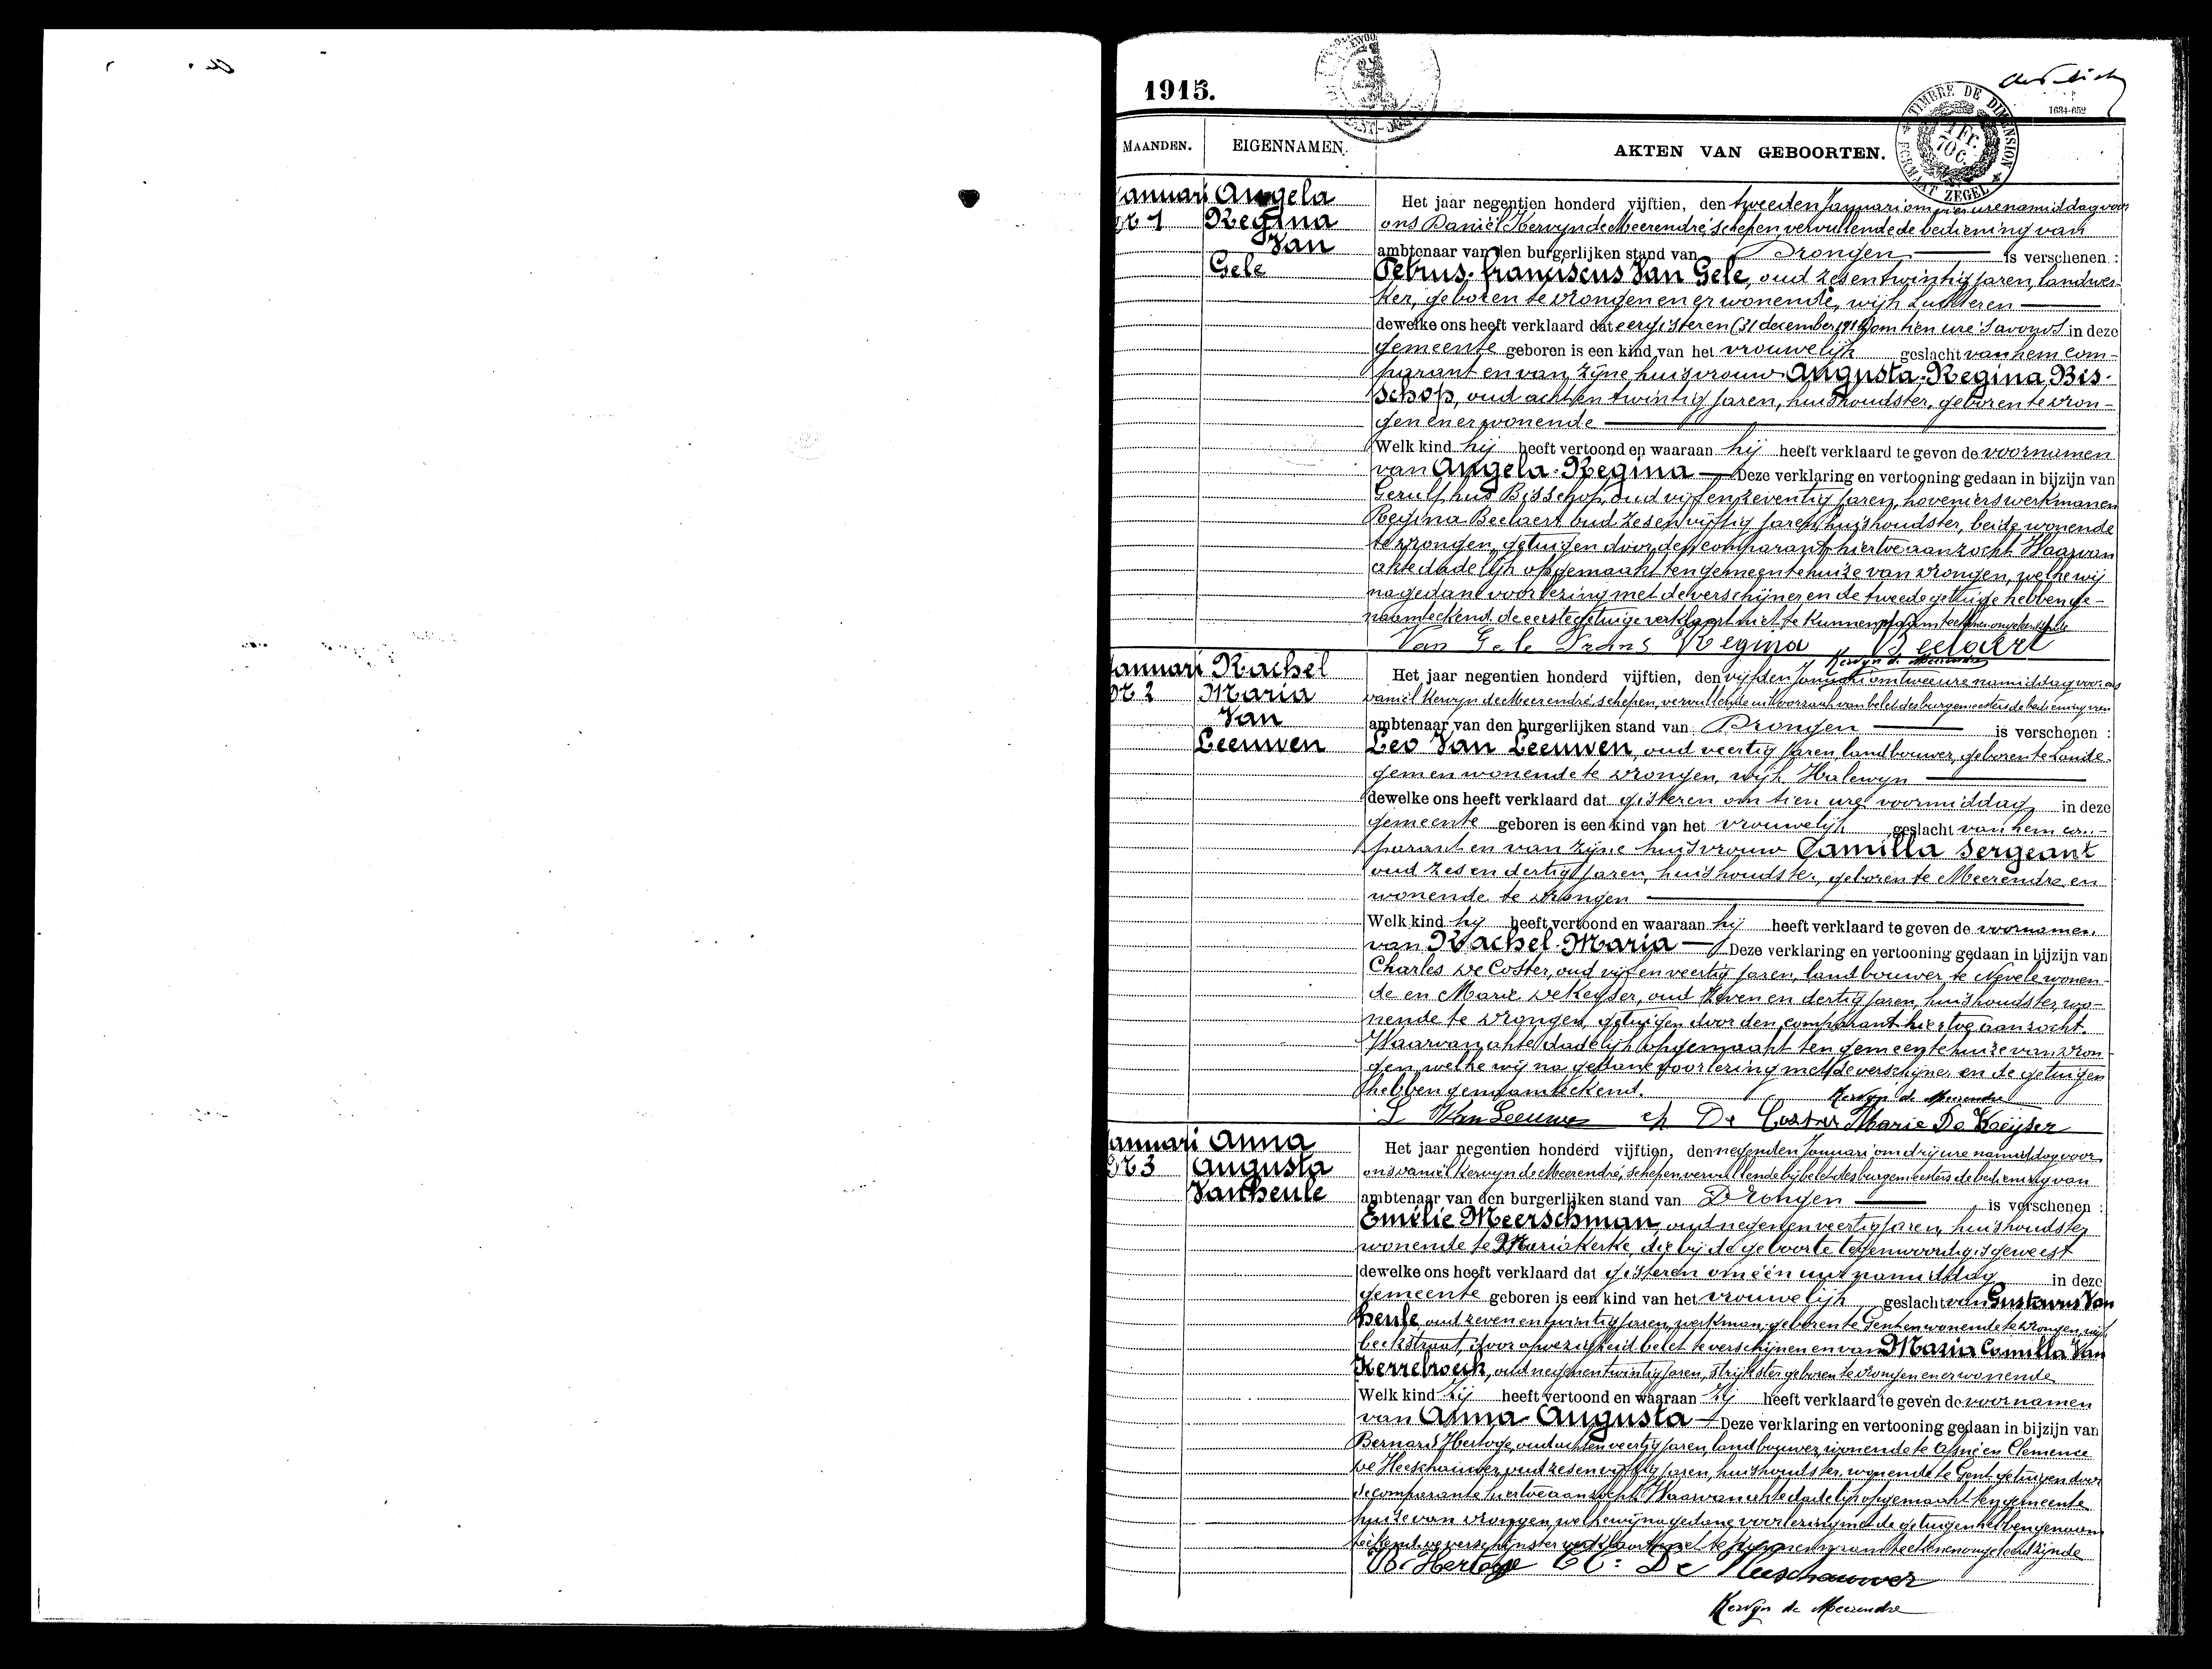 1915.
1684-652
TIMBRE DE DIMENSION
1 Fr. 70 C.
FORMAAT ZEGEL
MAANDEN. EIGENNAMEN. AKTEN VAN GEBOORTEN.
Januari Angela Het jaar negentien honderd vijftien, den tweeden Januari om vier ure namiddag voor
N 1 Regina ons Daniël Kervyn de Meerendré, schepen, vervullende de bediening van
Van ambtenaar van den burgerlijken stand van Drongen is verschenen :
Gele Petrus-Franciscus Van Gele, oud zesentwintig jaren, landwer-
ker, geboren te Drongen en er wonende, wijk Luchteren
dewelke ons heeft verklaard dat eergisteren (31 december 1914) om tien ure 's avonds in deze
gemeente geboren is een kind van het vrouwelijk geslacht van hem com-
parant en van zijne huisvrouw Augusta-Regina Bis-
schop, oud achtentwintig jaren, huishoudster, geboren te Dron-
gen en er wonende
Welk kind hij heeft vertoond en waaraan hij heeft verklaard te geven de voornamen
van Angela-Regina Deze verklaring en vertooning gedaan in bijzijn van
Gerulphus Bisschop, oud vijfenzeventig jaren, hovenierswerkman en
Regina Beelaert oud zesenvijftig jaren, huishoudster, beide wonende
te Drongen, getuigen door den comparant hiertoe aanzocht. Waarvan
akte dadelijk opgemaakt ten gemeentehuize van Drongen, welke wij
na gedane voorlezing met de verschijner en de tweede getuige hebben ge-
naamteekend. de eerste getuige verklaart niet te kunnen naamteekenen
Van Gele Frans Regina Beelaert
Kervyn de Meerendré
Januari Rachel Het jaar negentien honderd vijftien, den vijfden Januari om twee ure namiddag voor ons
N 2 Maria Daniël Kervyn de Meerendré, schepen, vervullende uit oorzaak van belet des burgemeesters de bediening van
Van ambtenaar van den burgerlijken stand van Drongen is verschenen :
Leeuwen Leo Van Leeuwen, oud veertig jaren, landbouwer, geboren te Lande-
gem en wonende te Drongen, wijk Halewyn
dewelke ons heeft verklaard dat gisteren om tien ure voormiddag in deze
gemeente geboren is een kind van het vrouwelijk geslacht van hem com-
parant en van zijne huisvrouw Camilla Sergeant
oud zesendertig jaren, huishoudster, geboren te Meerendre en
wonende te Drongen
Welk kind hij heeft vertoond en waaraan hij heeft verklaard te geven de voornamen
van Rachel-Maria Deze verklaring en vertooning gedaan in bijzijn van
Charles De Coster, oud vijfenveertig jaren, landbouwer te Nevele wonen-
de en Marie De Keyser, oud zeven en dertig jaren, huishoudster, wo-
nende te Drongen, getuigen door den comparant hiertoe aanzocht.
Waarvan akte dadelijk opgemaakt ten gemeentehuize van Dron-
gen, welke wij na gedane voorlezing met de verschijner en de getuigen
hebben genaamteekend. Kervyn de Meerendré
L Van Leeuwen Ch De Coster Marie De Keijser
Januari Anna Het jaar negentien honderd vijftien, den negenden Januari om drij ure namiddag voor
N 3 Augusta ons Daniël Kervyn de Meerendré, schepen vervullende bij belet des burgemeesters de bediening van
Vanheule ambtenaar van den burgerlijken stand van Drongen is verschenen :
Emélie Meerschman, oud negenenveertig jaren, huishoudster
wonende te Mariakerke, die bij de geboorte tegenwoordig is geweest
dewelke ons heeft verklaard dat gisteren om één uur namiddag in deze
gemeente geboren is een kind van het vrouwelijk geslacht van Gustavus Van
heule, oud zevenentwintig jaren, werkman, geboren te Gent en wonende te Drongen, wijk
beekstraat, door afwezigheid belet te verschijnen en van Maria Camilla Van
Kerrebroeck, oud negenentwintig jaren, strijkster geboren te Drongen en er wonende
Welk kind zij heeft vertoond en waaraan zij heeft verklaard te geven de voornamen
van Anna Augusta Deze verklaring en vertooning gedaan in bijzijn van
Bernard Hertoge, oud achtenveertig jaren, landbouwer, wonende te Afsné en Clemence
De Heeschauwer, oud zesenvijftig jaren, huishoudster, wonende te Gent, getuigen door
de comparante hiertoe aanzocht. Waarvan akte dadelijk opgemaakt ten gemeente
huize van Drongen, welke wij na gedane voorlezing met de getuigen hebben genaam
teekend. de verschijnster verklaart niet te kunnen naamteekenen ongeleerd zijnde
B. Hertoge Cl: De Heeschauwer
Kervyn de Meerendré